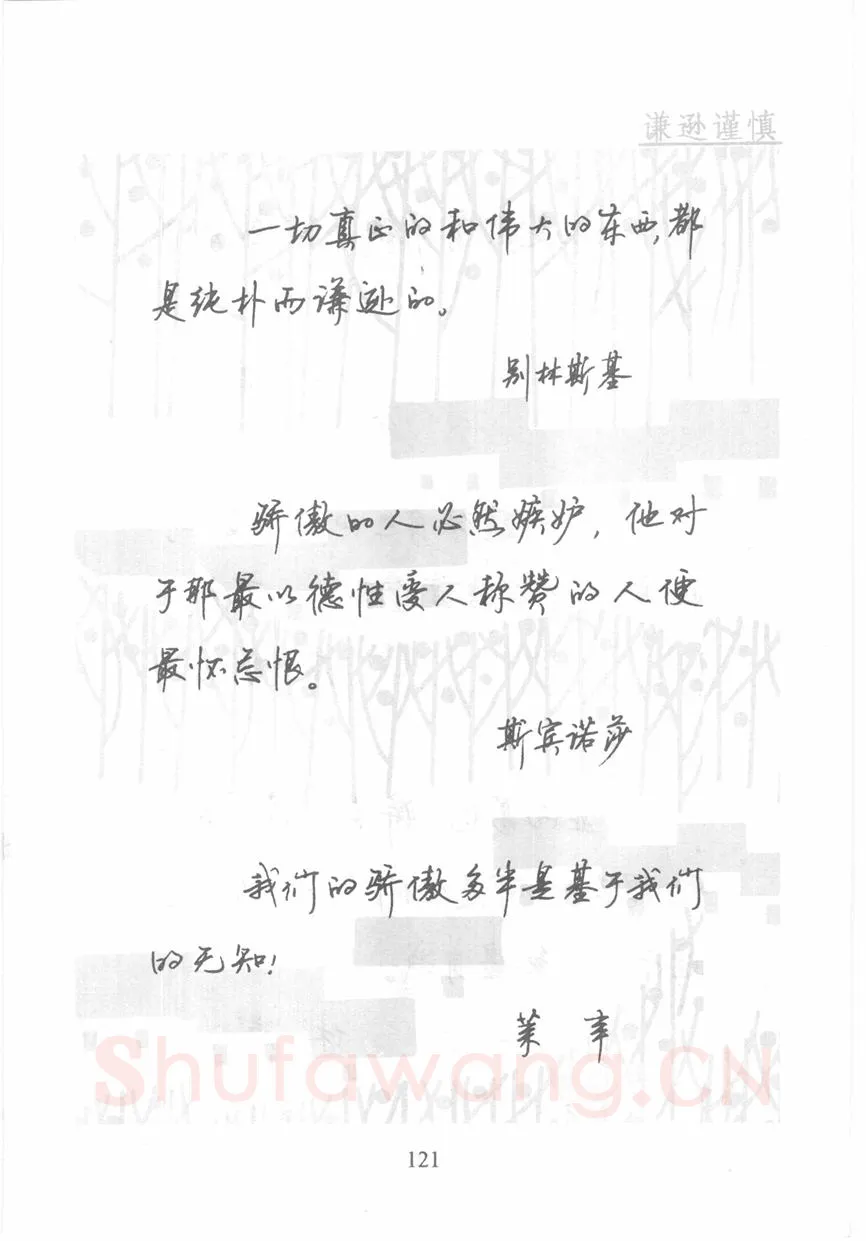 谦逊谨慎
一切真正的和伟大的东西,都
是纯朴而谦逊的。
别林斯基
骄傲的人必然嫉妒,他对
于那最以德性受人称赞的人便
最怀忌恨。
斯宾诺莎
我们的骄傲多半是基于我们
的无知!
莱 辛
Shufawang.CN
121